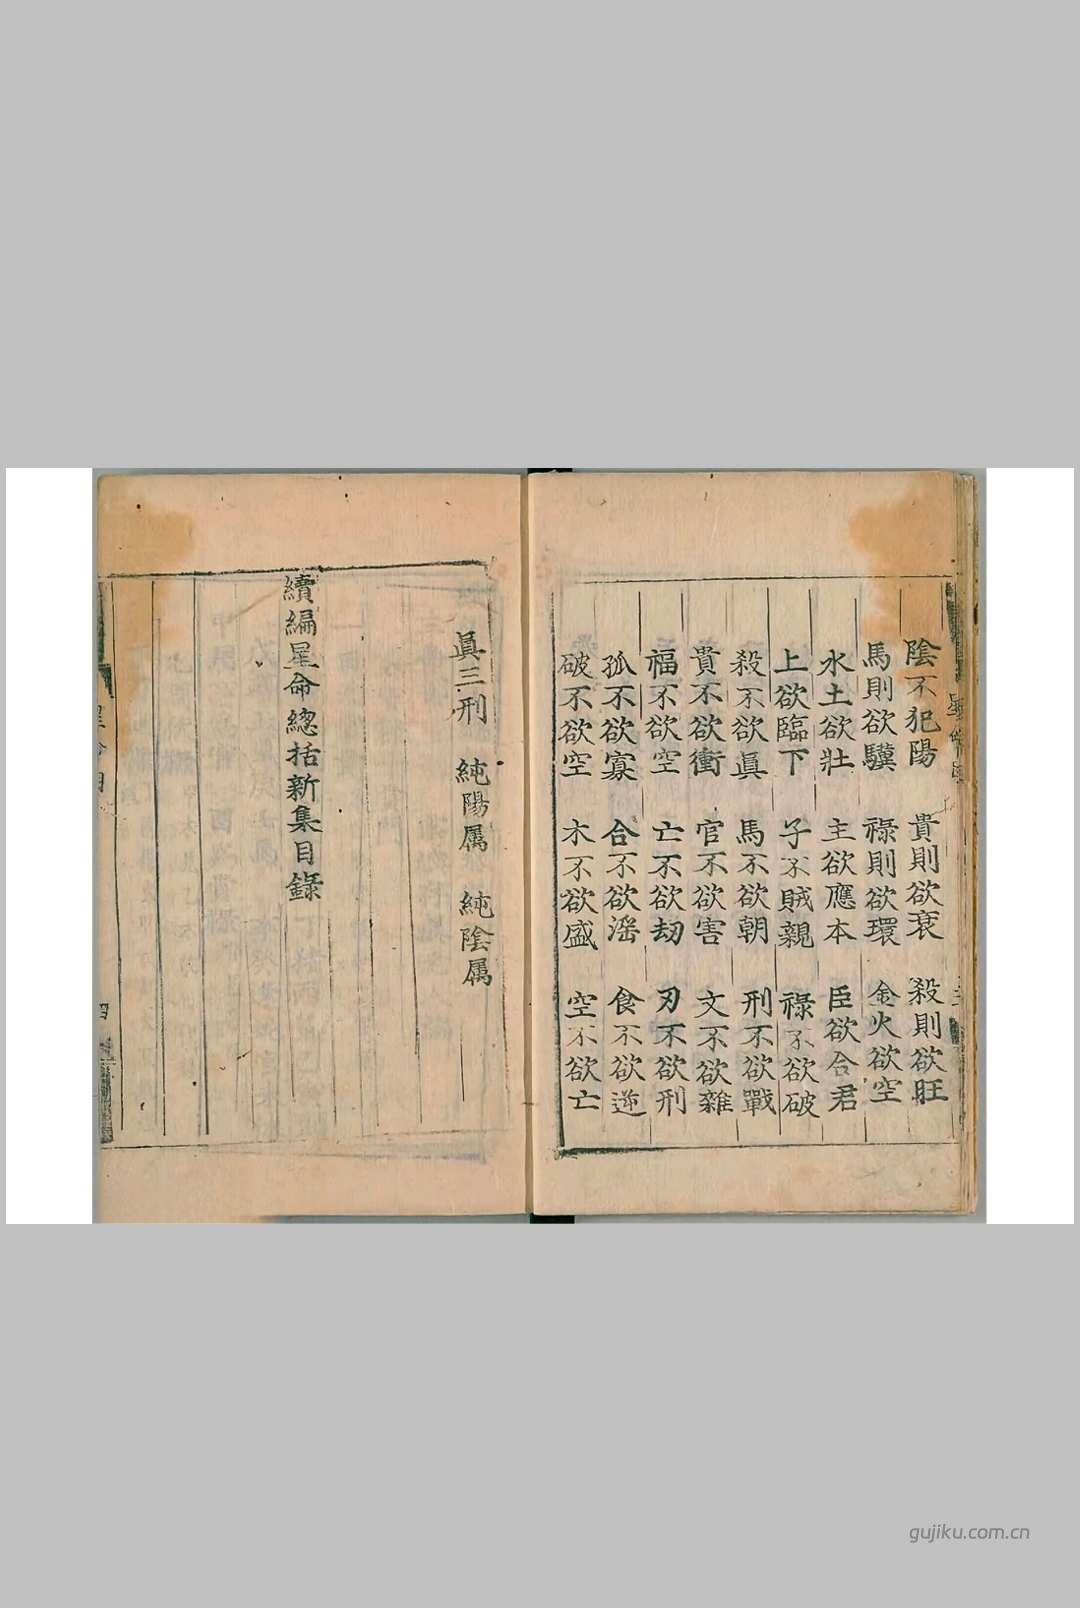 陰不犯陽　貴則欲衰　殺則欲旺
馬則欲驥　祿則欲環　金火欲空
水土欲壯　主欲應本　臣欲合君
上欲臨下　子不賊親　祿不欲破
殺不欲眞　馬不欲朝　刑不欲戰
貴不欲衝　官不欲害　文不欲雜
福不欲空　亡不欲刼　刃不欲刑
孤不欲寡　合不欲滛　食不欲逆
破不欲空　木不欲盛　空不欲亡
眞三刑　純陽属　純陰属
續編星命總括新集目錄
gujiku.com.cn